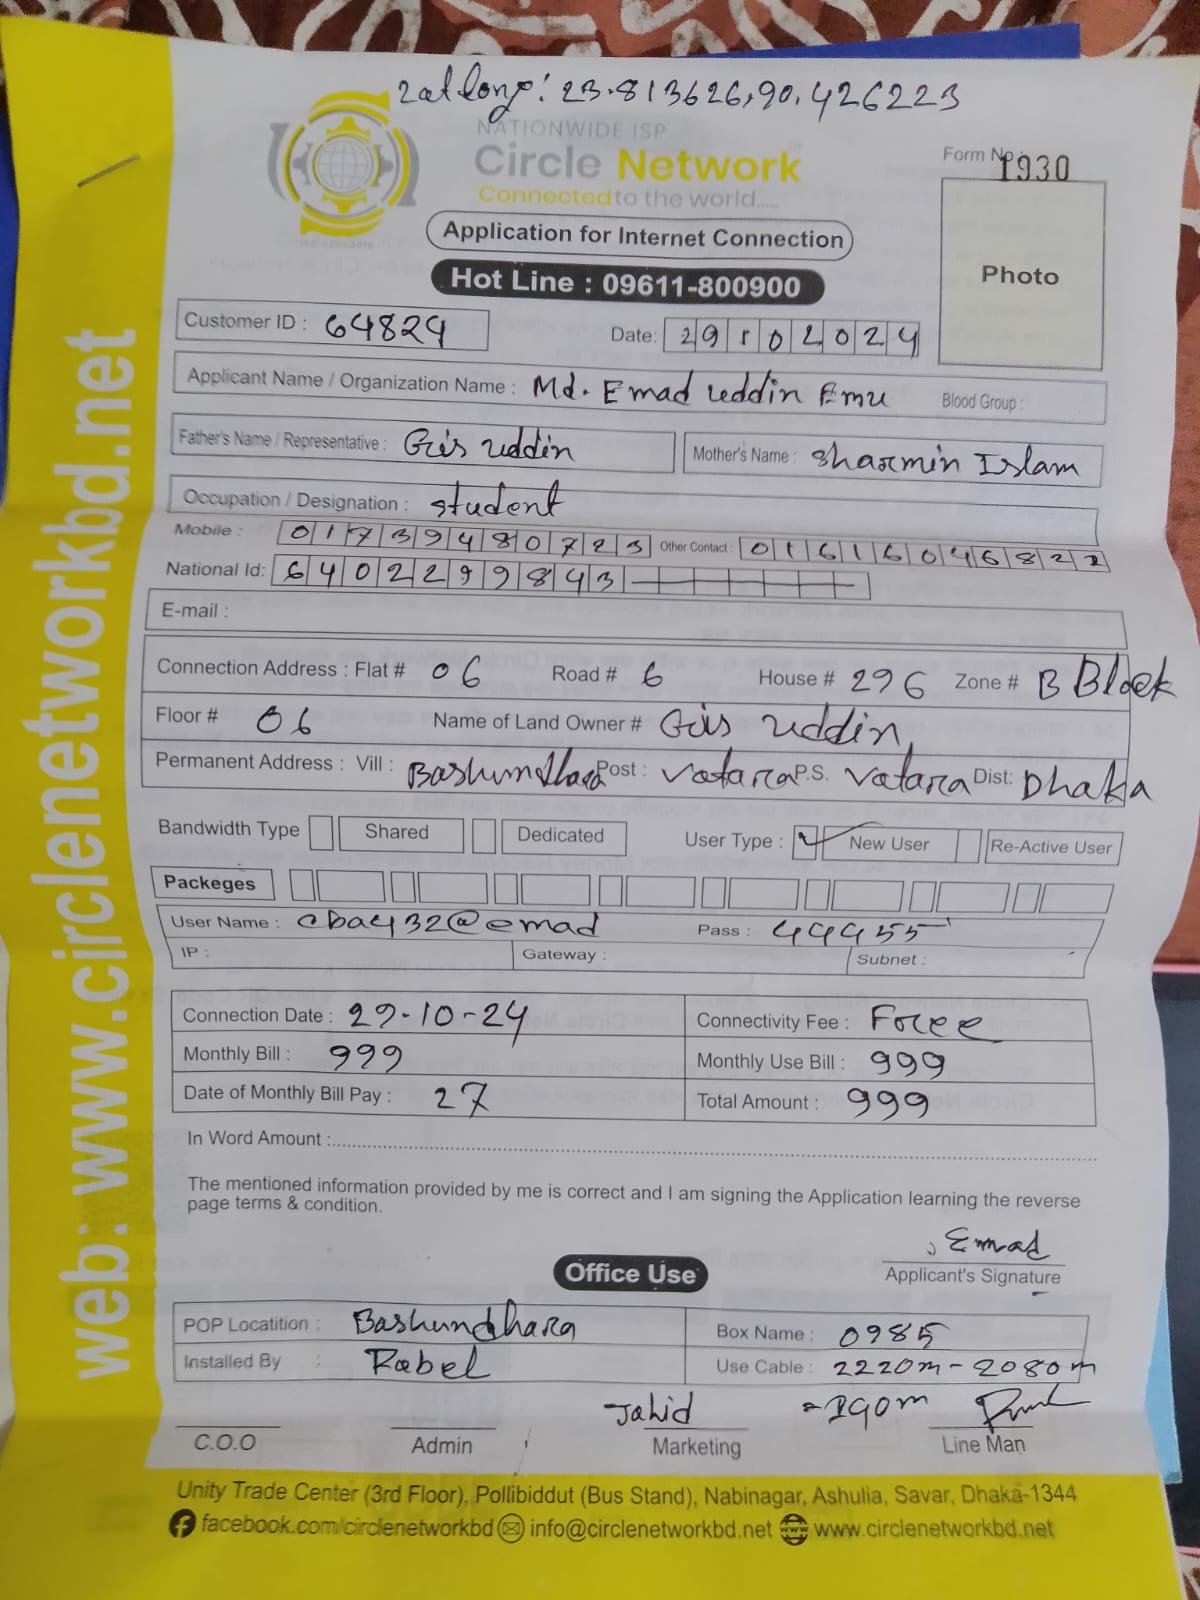 Lat long: 23.813626,90.426223
NATIONWIDE ISP
Circle Network
Connected to the world.....
Form No 1930
Application for Internet Connection
Hot Line : 09611-800900
Photo
Customer ID : 64829 Date: 29102024
Applicant Name / Organization Name : Md. Emad uddin Emu Blood Group :
Father's Name / Representative : Gias uddin Mother's Name : Sharmin Islam
Occupation / Designation : Student
Mobile : 01739480723 Other Contact : 01616046822
National Id: 6402299843
E-mail :
Connection Address : Flat # 06 Road # 6 House # 296 Zone # B Block
Floor # 06 Name of Land Owner # Gias uddin
Permanent Address : Vill : Bashundhara Post : Vatara P.S. Vatara Dist: Dhaka
Bandwidth Type Shared Dedicated User Type : ✓ New User Re-Active User
Packeges
User Name : cba432@emad Pass : 44455
IP : Gateway : Subnet :
Connection Date : 29-10-24 Connectivity Fee : Free
Monthly Bill : 999 Monthly Use Bill : 999
Date of Monthly Bill Pay : 27 Total Amount : 999
In Word Amount :
The mentioned information provided by me is correct and I am signing the Application learning the reverse
page terms & condition.
Emad
Applicant's Signature
Office Use
POP Locatition : Bashundhara Box Name : 0985
Installed By : Rabel Use Cable : 2220m-2080m
Jahid = 190m
C.O.O Admin Marketing Line Man
Unity Trade Center (3rd Floor), Pollibiddut (Bus Stand), Nabinagar, Ashulia, Savar, Dhaka-1344
facebook.com/circlenetworkbd info@circlenetworkbd.net www.circlenetworkbd.net
web: www.circlenetworkbd.net